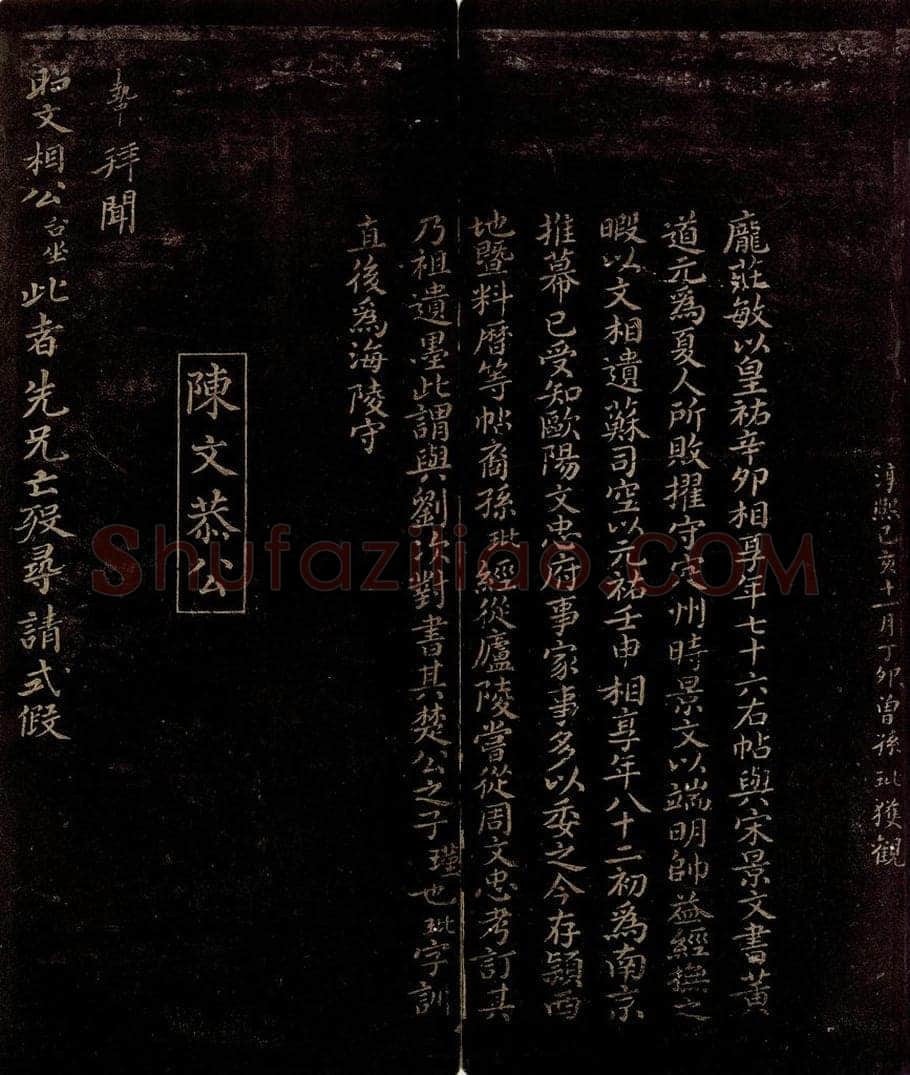 淳熙己亥十一月丁卯曽孫玭獲観
龐莊敏以皇祐辛卯相享年七十六右帖與宋景文書黃
道元為夏人所敗擢守定州時景文以端明帥益經撫之
暇以文相遺蘇司空以元祐壬申相享年八十二初為南京
推幕已受知歐陽文忠府事家事多以委之今存潁西
地暨料曆等帖裔孫玭經從廬陵嘗從周文忠考訂其
乃祖遺墨此謂與劉 對書其楚公之子瑾也玭字訓
直後為海陵守
陳文恭公
執 拜聞
昭文相公台坐此者先兄亡殁尋請式假
Shufaziliao.COM